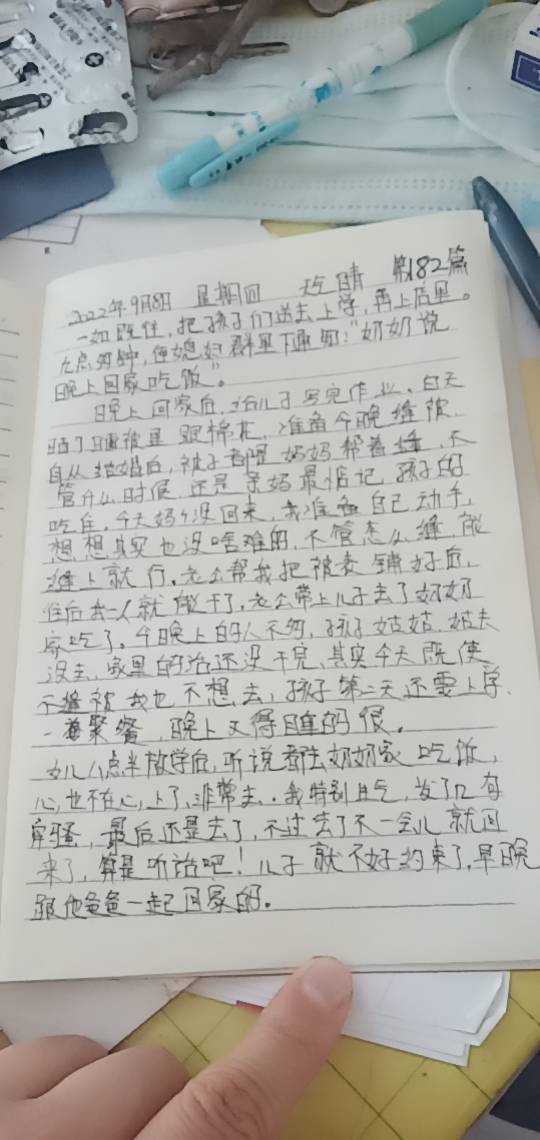 2022年9月8日 星期四 晴 第182篇
一如既往,把孩子们送去上学,再上店里。
九点多钟,便媳妇群里下通知:"奶奶说
晚上回家吃饭"。
晚上回家后,给儿子写完作业,白天
晒了晒被里跟棉花,准备今晚缝被.
自从结婚后,被子都是妈妈帮着缝,不
管什么时候,还是亲妈最惦记孩子的
吃住,今天妈妈没回来,我准备自己动手,
想想其实也没啥难的,不管怎么缝,能
缝上就行,老公帮我把被表铺好后,
往后我一人就能干了,老公带上儿子去了奶奶
家吃了。今晚上的人不多,孩子姑姑、姑夫
没去,家里的活还没干完,其实今天既使
不缝被我也不想去,孩子第二天还要上学,
一聚餐,晚上又得睡的很。
女儿八点半放学后,听说都去奶奶家吃饭,
心也不在心上了,非常去..我特别生气,发了几句
牢骚,最后还是去了,不过去了不一会儿就回
来了,算是听话吧!儿子就不好约束了,早晚
跟他爸爸一起回家的。